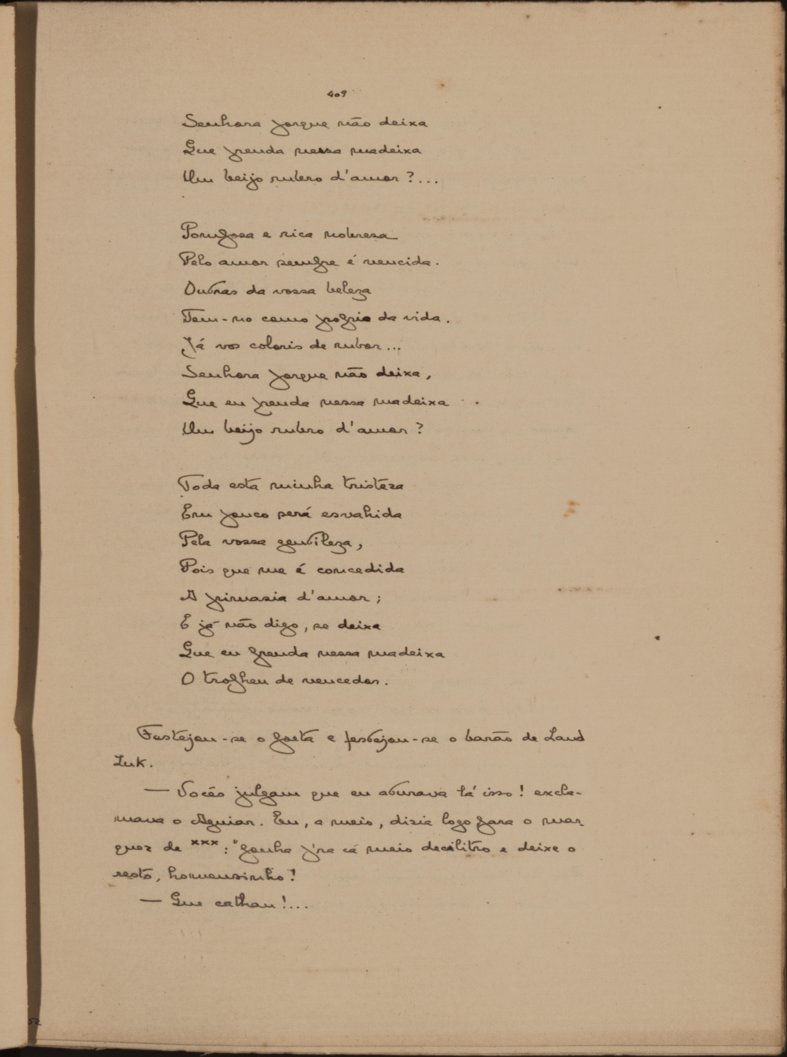 409
Senhora porque não deixa
Que prenda nessa madeixa
Um beijo rubro d'amor?...
Pomposa e rica nobresa
Pelo amor sempre é vencida.
Outras da vossa beleza
Tem-no como proprio da vida.
Já vos coloris de rubor...
Senhora porque não deixa,
Que eu prenda nessa madeixa
Um beijo rubro d'amor?
Toda esta minha tristeza
Em pouco será esvahida
Pela vossa gentileza,
Pois que me é concedida
A primasia d'amor;
E já não digo, se deixa
Que eu prenda nessa madeixa
O tropheu de vencedor.
Festejou-se o poeta e festejou-se o barão de Laud
Luk.
— Vocês julgam que eu aturava lá isso! excla-
mava o Aguiar. Eu, a meio, dizia logo para o mar
quez de xxx: "Ganha p'ra cá meio decilitro e deixe o
resto, homensinho!
— Que cathau!...
52